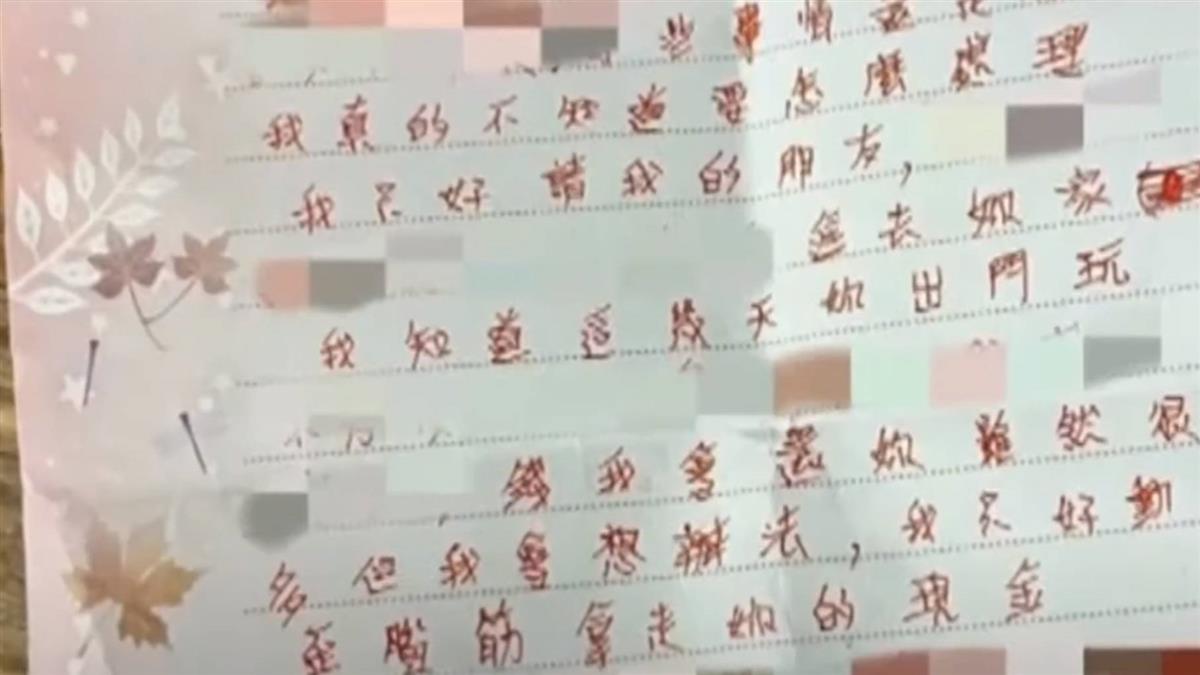 些事情
我真的不知道要怎麼處理
我只好請我的朋友，
進去妳家
我知道這幾天妳出門玩
錢我會還妳雖然很
多但我會想辦法，我只好動
歪腦筋拿走妳的現金